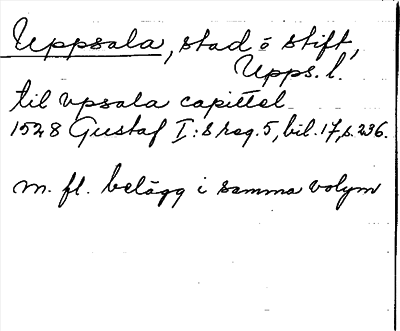 Uppsala, stad o stift,
Upps. l.
til vpsala capittel
1528 Gustaf I:s reg. 5, bil. 17, s. 236.
m. fl. belägg i samma volym